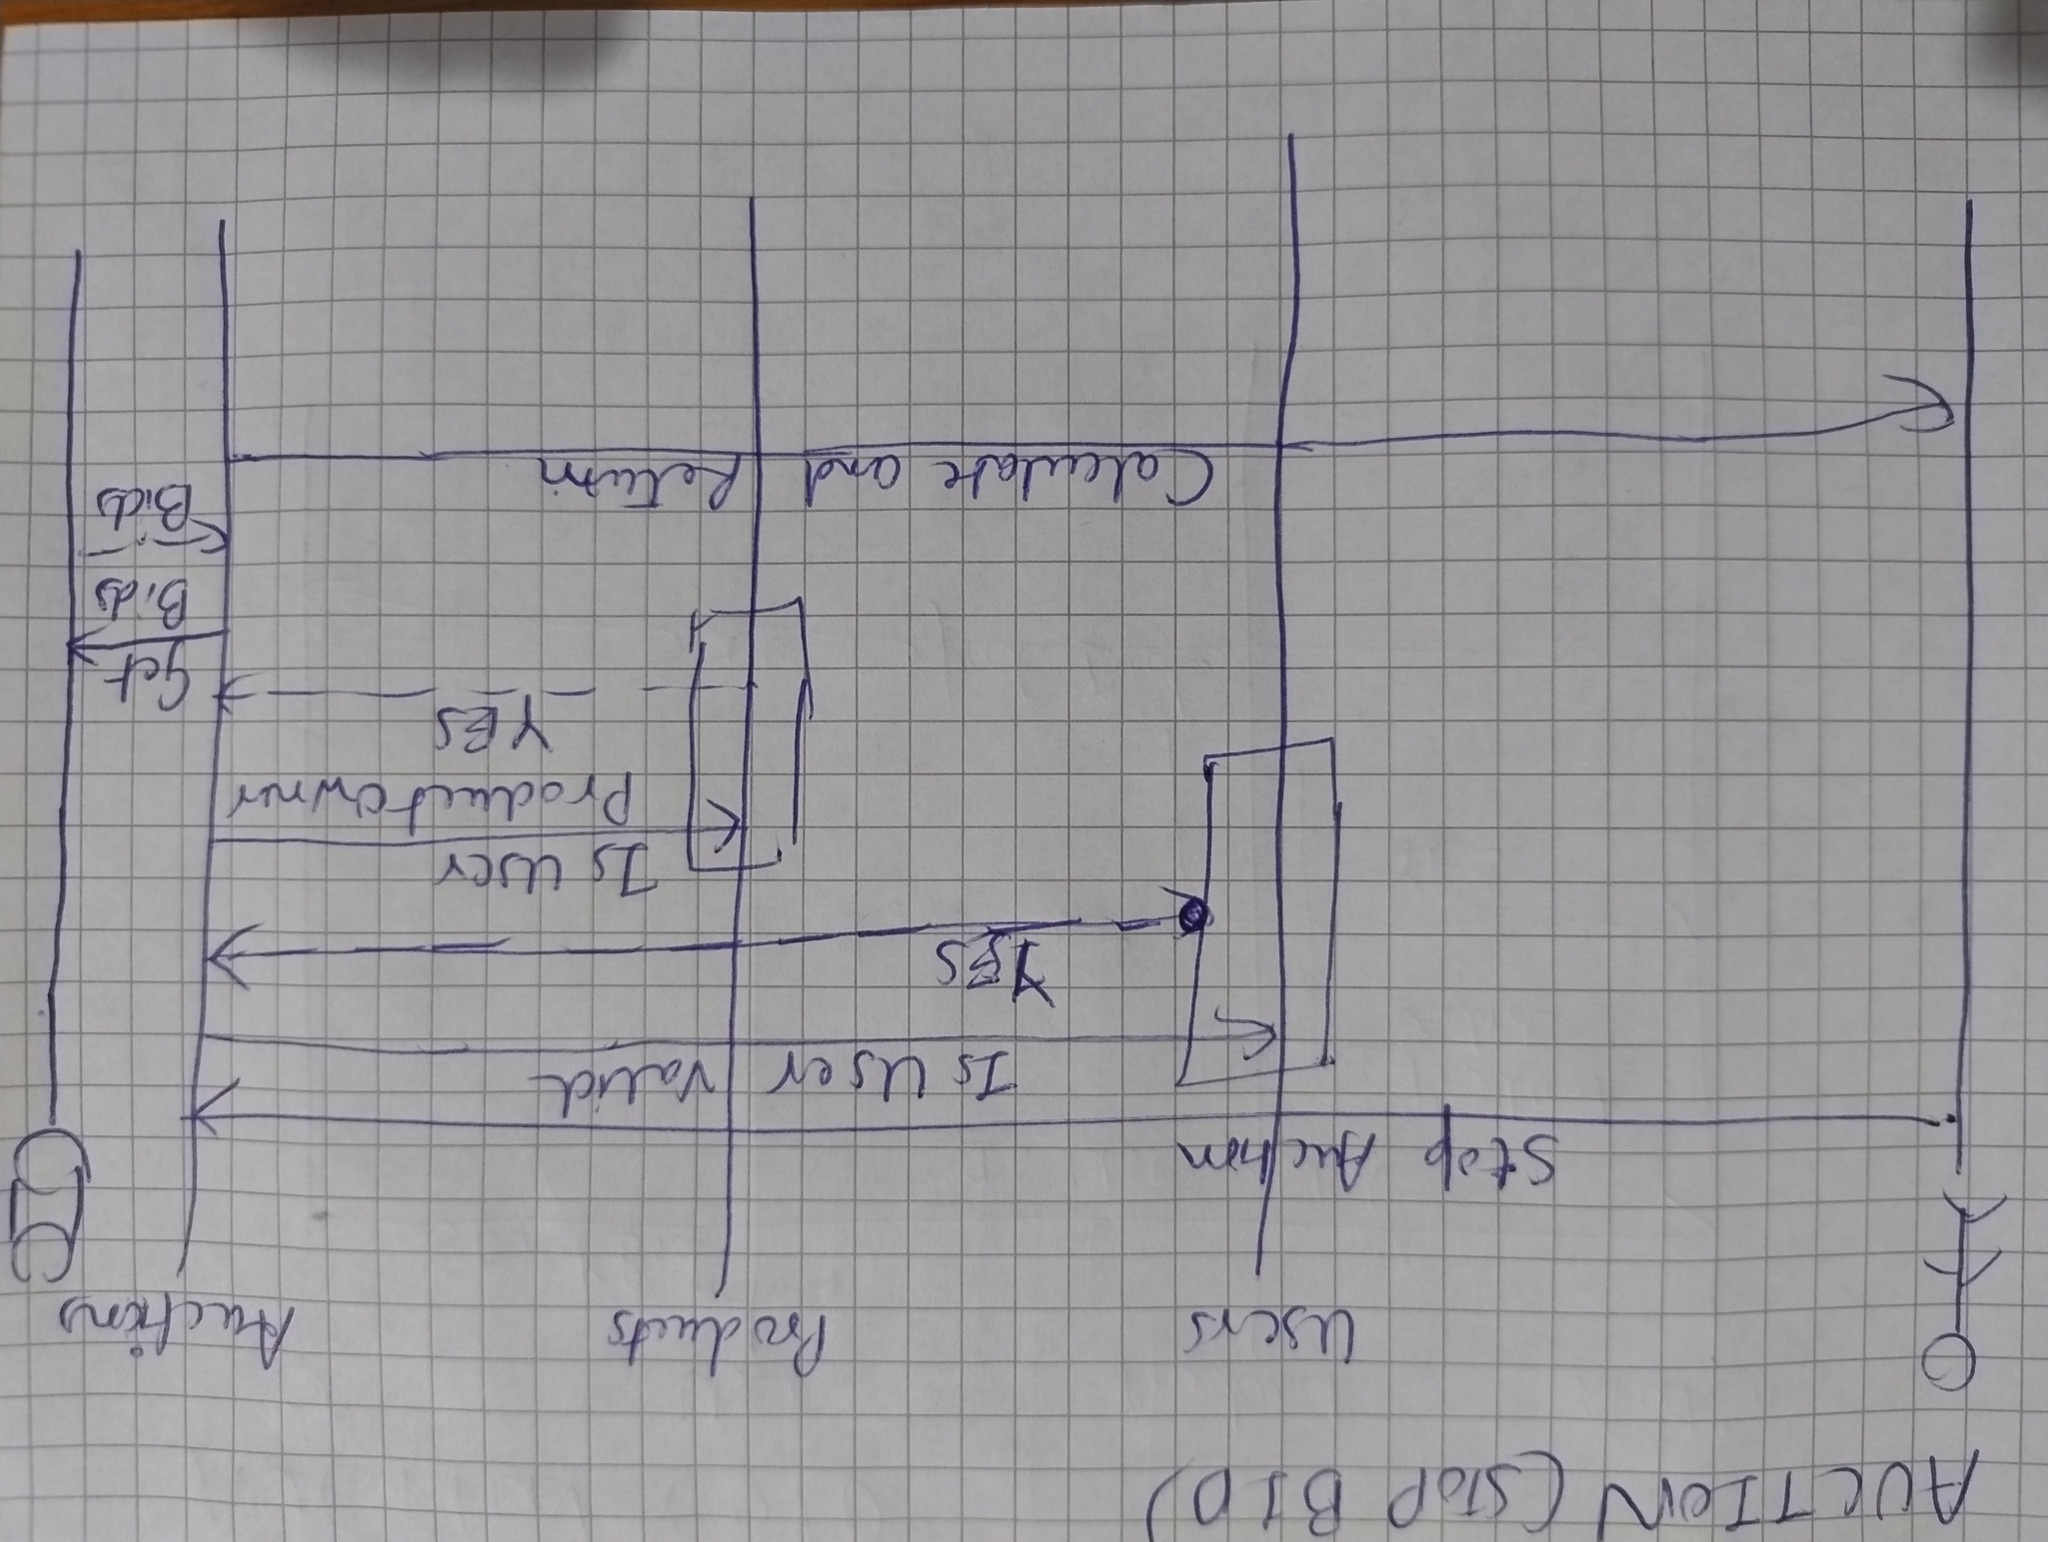 AUCTION (STOP BID)
Users
Products
Auctions
Stop Auction
Is User Valid
YES
Is User
Product Owner
YES
Get
Bids
Bids
Calculate and Return